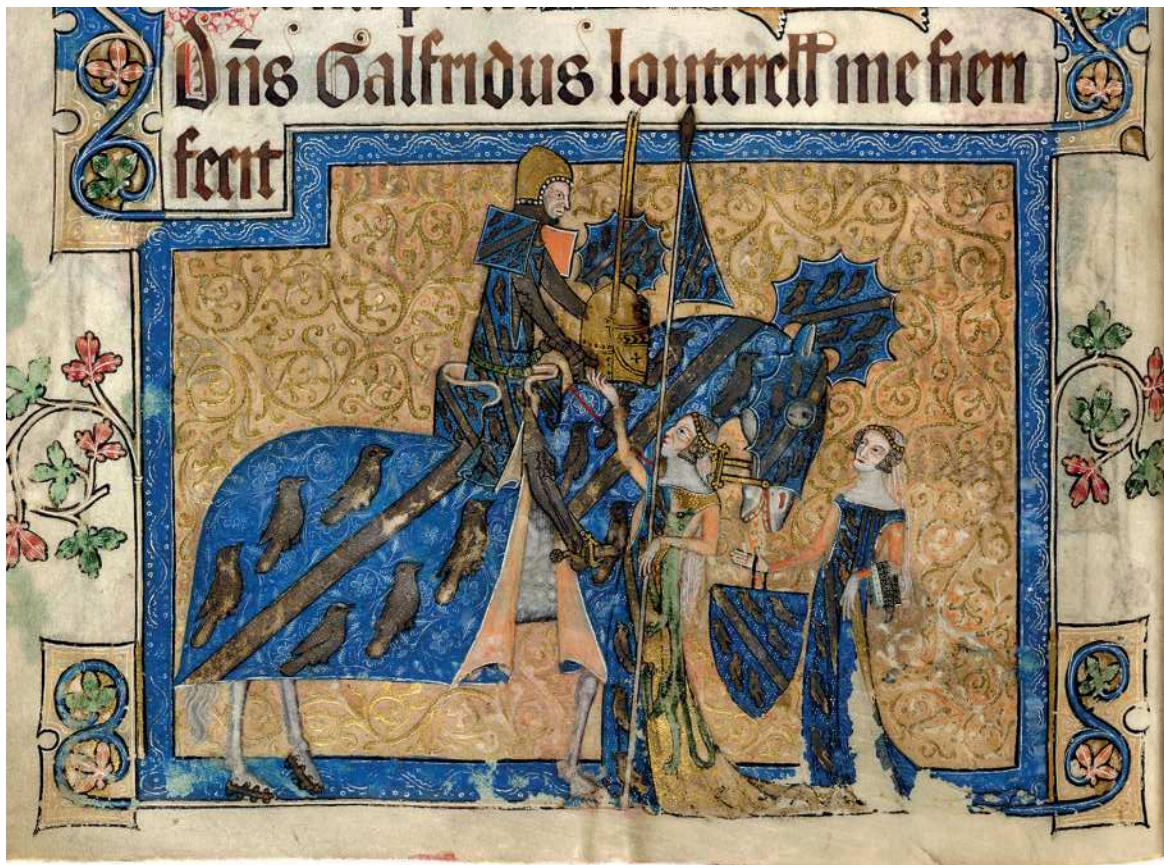 Dn̄s Galfridus louterell me fieri
fecit